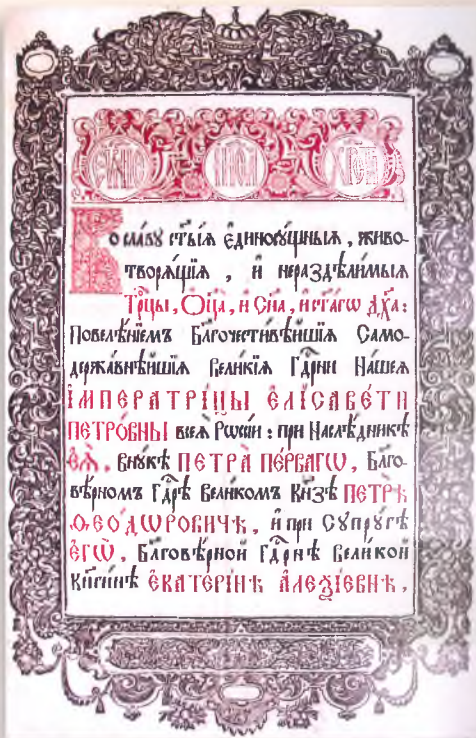 Во славу ст҃ыѧ є҆диносꙋ́щныѧ, живо-
творѧ́щїѧ, и҆ нераздѣ́лимыѧ
Трⷪ҇цы, Ѻ҆ц҃а̀, и҆ Сн҃а, и҆ ст҃а́гѡ Дх҃а:
Повелѣ́нїемъ Бл҃гочести́вѣйшїѧ Само-
держа́внѣйшїѧ Вели́кїѧ Гдⷭ҇рни На́шеѧ
І҆МПЕРАТРІ́ЦЫ Є҆ЛІСАВЕ́ТИ
ПЕТРО́ВНЫ всеѧ̀ Рѡссі́и: при Наслѣ́дникѣ
Є҆Ѧ̀, внꙋ́кѣ ПЕТРА̀ ПЕ́РВАГѠ, Бл҃го-
вѣ́рномъ Гдⷭ҇рѣ Вели́комъ Кн҃зѣ ПЕТРѢ̀
Ѳ҆ЕО́ДѠРОВИЧѢ, и҆ при Сꙋпрꙋ́гѣ
Є҆ГѠ̀, Бл҃говѣ́рной Гдⷭ҇рнѣ Вели́кой
Кн҃ги́нѣ Є҆КАТЕРІ́НѢ А҆ЛЕѮІ́ЕВНѢ,